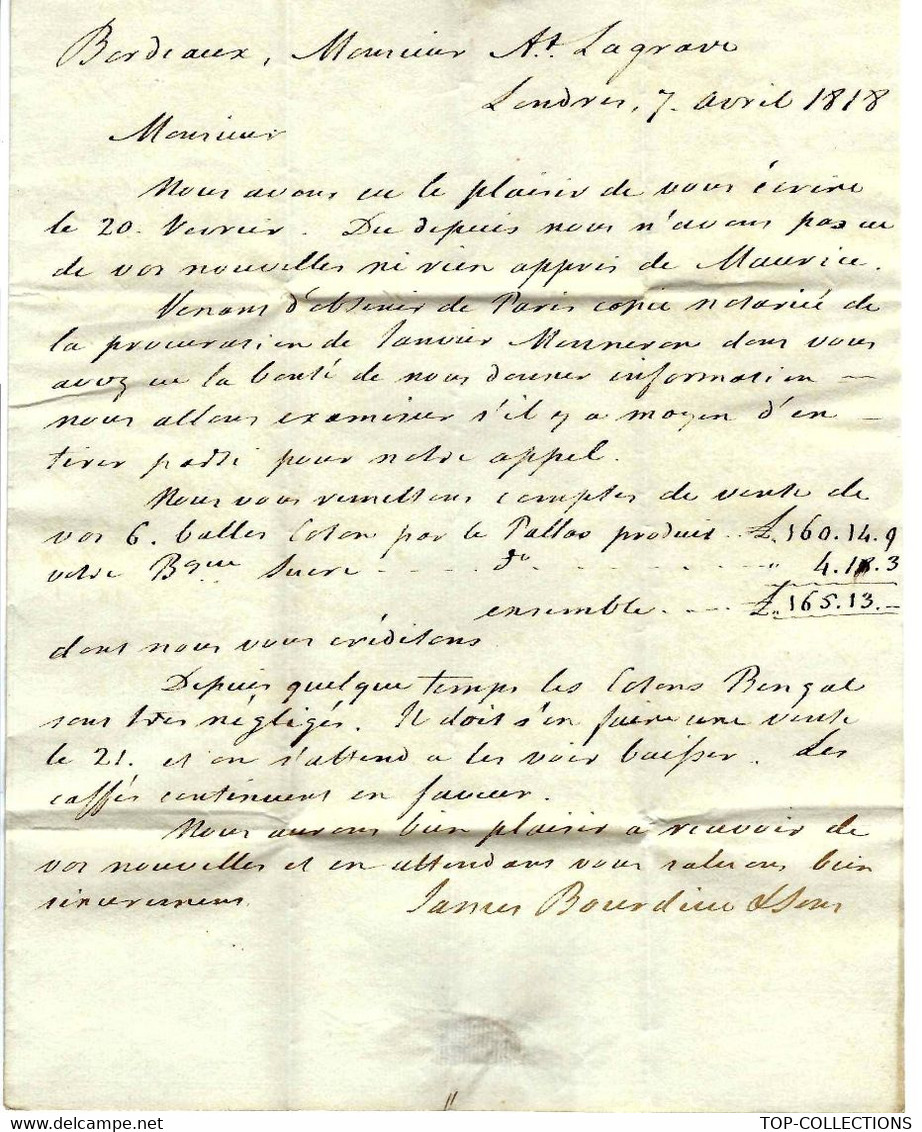 Bordeaux, Monsieur At. Lagrave
Londres, 7. avril 1818
Monsieur
Nous avons eu le plaisir de vous écrire
le 20. fevrier. Du depuis nous n'avons pas eu
de vos nouvelles ni rien appris de Maurice.
Venant d'obtenir de Paris copie notariée de
la procuration de Janvier Monneron dont vous
avez eu la bonté de nous donner information —
nous allons examiner s'il y a moyen d'en —
tirer parti pour notre appel.
Nous vous remettons comptes de vente de
vos 6. balles Coton par le Pallas produit .. £.160.14.9
votre Bque Sucre - - - - do - - - - - - " 4.18.3
ensemble. - - - £.165.13.—
dont nous vous créditons
Depuis quelque temps les Cotons Bengal
sont très négligés. Il doit s'en faire une vente
le 21. et on s'attend a les voir baisser. Les
caffés continuent en faveur.
Nous aurons bien plaisir a recevoir de
vos nouvelles et en attendant vous saluons bien
sincerement.
James Bourdieu & Sons
TOP-COLLECTIONS